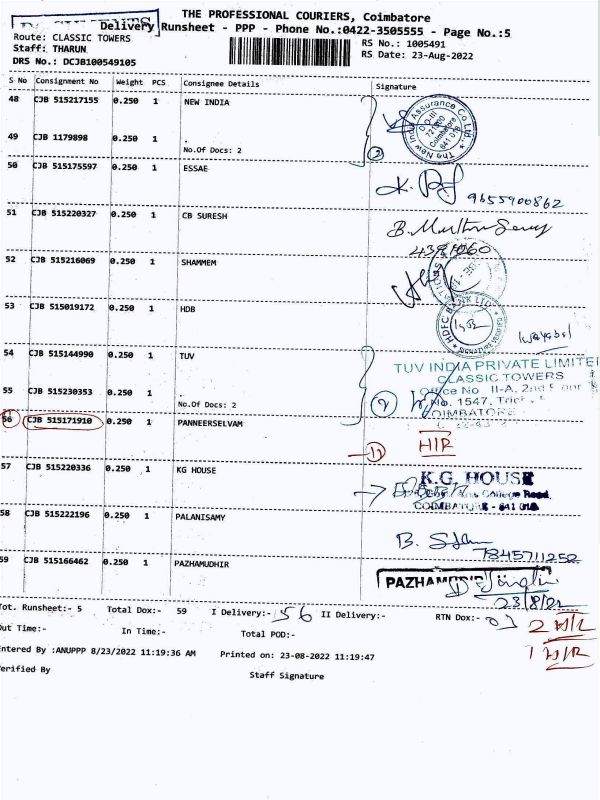 THE PROFESSIONAL COURIERS, Coimbatore
Delivery Runsheet - PPP - Phone No.:0422-3505555 - Page No.:5
Route: CLASSIC TOWERS
RS No.: 1005491
Staff: THARUN
RS Date: 23-Aug-2022
DRS No.: DCJB100549105
S No Consignment No Weight PCS Consignee Details Signature
48 CJB 515217155 0.250 1 NEW INDIA
The New India Assurance Co.Ltd.
49 CJB 1179898 0.250 1 .
No.Of Docs: 2
2
50 CJB 515175597 0.250 1 ESSAE
9655900862
51 CJB 515220327 0.250 1 CB SURESH
52 CJB 515216069 0.250 1 SHAMMEM
53 CJB 515019172 0.250 1 HDB
HDFC BANK LTD
SIGNATURE VERIFIED
54 CJB 515144990 0.250 1 TUV
TUV INDIA PRIVATE LIMITE
CLASSIC TOWERS
55 CJB 515230353 0.250 1 .
No.Of Docs: 2
2
Office No. II-A, 2nd
No. 1547,
COIMBATORE
56 CJB 515171910 0.250 1 PANNEERSELVAM
HIR
57 CJB 515220336 0.250 1 KG HOUSE
K.G. HOUSE
Arts College Road,
COIMBATORE - 641 018
58 CJB 515222196 0.250 1 PALANISAMY
7845711252
59 CJB 515166462 0.250 1 PAZHAMUDHIR
23/8/22
Tot. Runsheet:- 5 Total Dox:- 59 I Delivery:- 56 II Delivery:- RTN Dox:- 03
Out Time:- In Time:- Total POD:-
Entered By :ANUPPP 8/23/2022 11:19:36 AM Printed on: 23-08-2022 11:19:47
Verified By Staff Signature